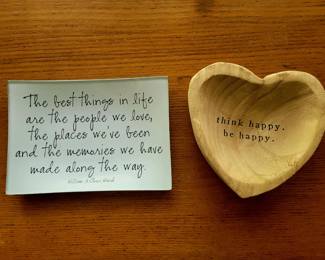 The best things in life
are the people we love,
the places we've been
and the memories we have
made along the way.
think happy.
be happy.